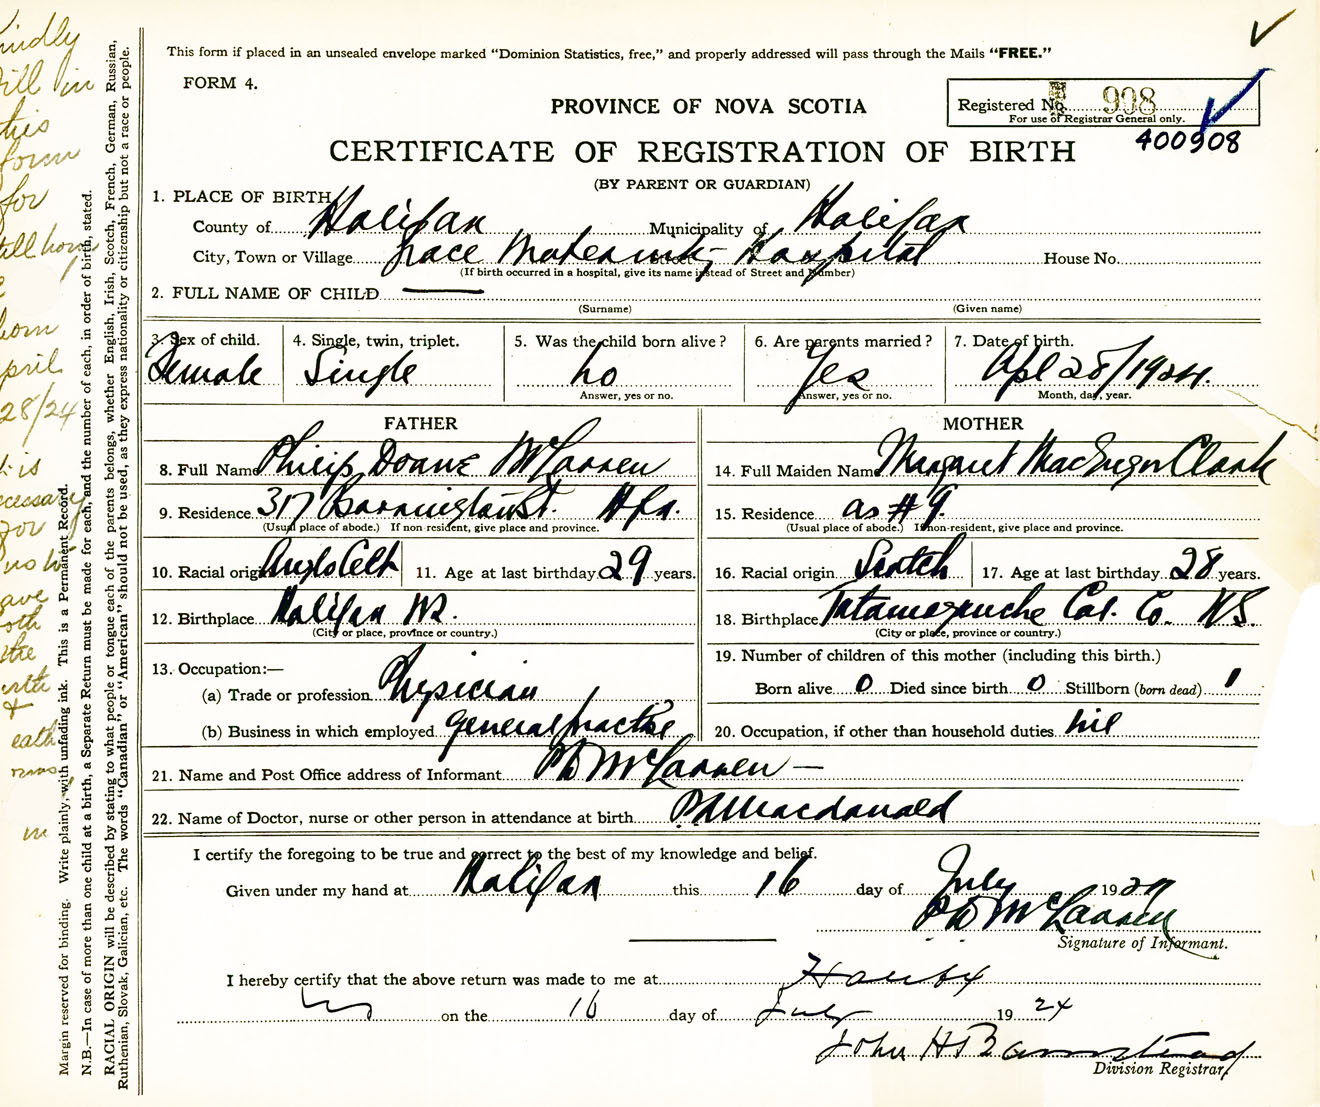 This form if placed in an unsealed envelope marked "Dominion Statistics, free," and properly addressed will pass through the Mails "FREE."
FORM 4.
PROVINCE OF NOVA SCOTIA
Registered No. 908
For use of Registrar General only.
400908
CERTIFICATE OF REGISTRATION OF BIRTH
(BY PARENT OR GUARDIAN)
1. PLACE OF BIRTH
County of Halifax Municipality of Halifax
City, Town or Village Grace Maternity Hospital House No.
(If birth occurred in a hospital, give its name instead of Street and Number)
2. FULL NAME OF CHILD
(Surname) (Given name)
3. Sex of child. 4. Single, twin, triplet. 5. Was the child born alive? 6. Are parents married? 7. Date of birth.
Female Single no Yes Apl 28/1924.
Answer, yes or no. Answer, yes or no. Month, day, year.
FATHER MOTHER
8. Full Name Philip Doane McLarren 14. Full Maiden Name Margaret MacGregor Clark
9. Residence 317 Barrington St. Hfx. 15. Residence as # 9.
(Usual place of abode.) If non-resident, give place and province. (Usual place of abode.) If non-resident, give place and province.
10. Racial origin Anglo Celt 11. Age at last birthday 29 years. 16. Racial origin Scotch 17. Age at last birthday 28 years.
12. Birthplace Halifax NS. 18. Birthplace Tatamagouche Col. Co. N.S.
(City or place, province or country.) (City or place, province or country.)
13. Occupation:— 19. Number of children of this mother (including this birth.)
(a) Trade or profession Physician Born alive 0 Died since birth 0 Stillborn (born dead) 1
(b) Business in which employed general practise 20. Occupation, if other than household duties nil
21. Name and Post Office address of Informant PD McLarren —
22. Name of Doctor, nurse or other person in attendance at birth PA Macdonald
I certify the foregoing to be true and correct to the best of my knowledge and belief.
Given under my hand at Halifax this 16 day of July 1924
PD McLarren
Signature of Informant.
I hereby certify that the above return was made to me at Halifax
NS on the 16 day of July 1924
John H Barnstead
Division Registrar.
Margin reserved for binding. Write plainly, with unfading ink. This is a Permanent Record.
N.B.—In case of more than one child at a birth, a Separate Return must be made for each, and the number of each, in order of birth, stated.
RACIAL ORIGIN will be described by stating to what people or tongue each of the parents belongs, whether English, Irish, Scotch, French, German, Russian,
Ruthenian, Slovak, Galician, etc. The words "Canadian" or "American" should not be used, as they express nationality or citizenship but not a race or people.
kindly
fill in
this
form
for
still born
born
April
28/24
it is
necessary
for
us to
have
both
the
birth
&
death
forms
in